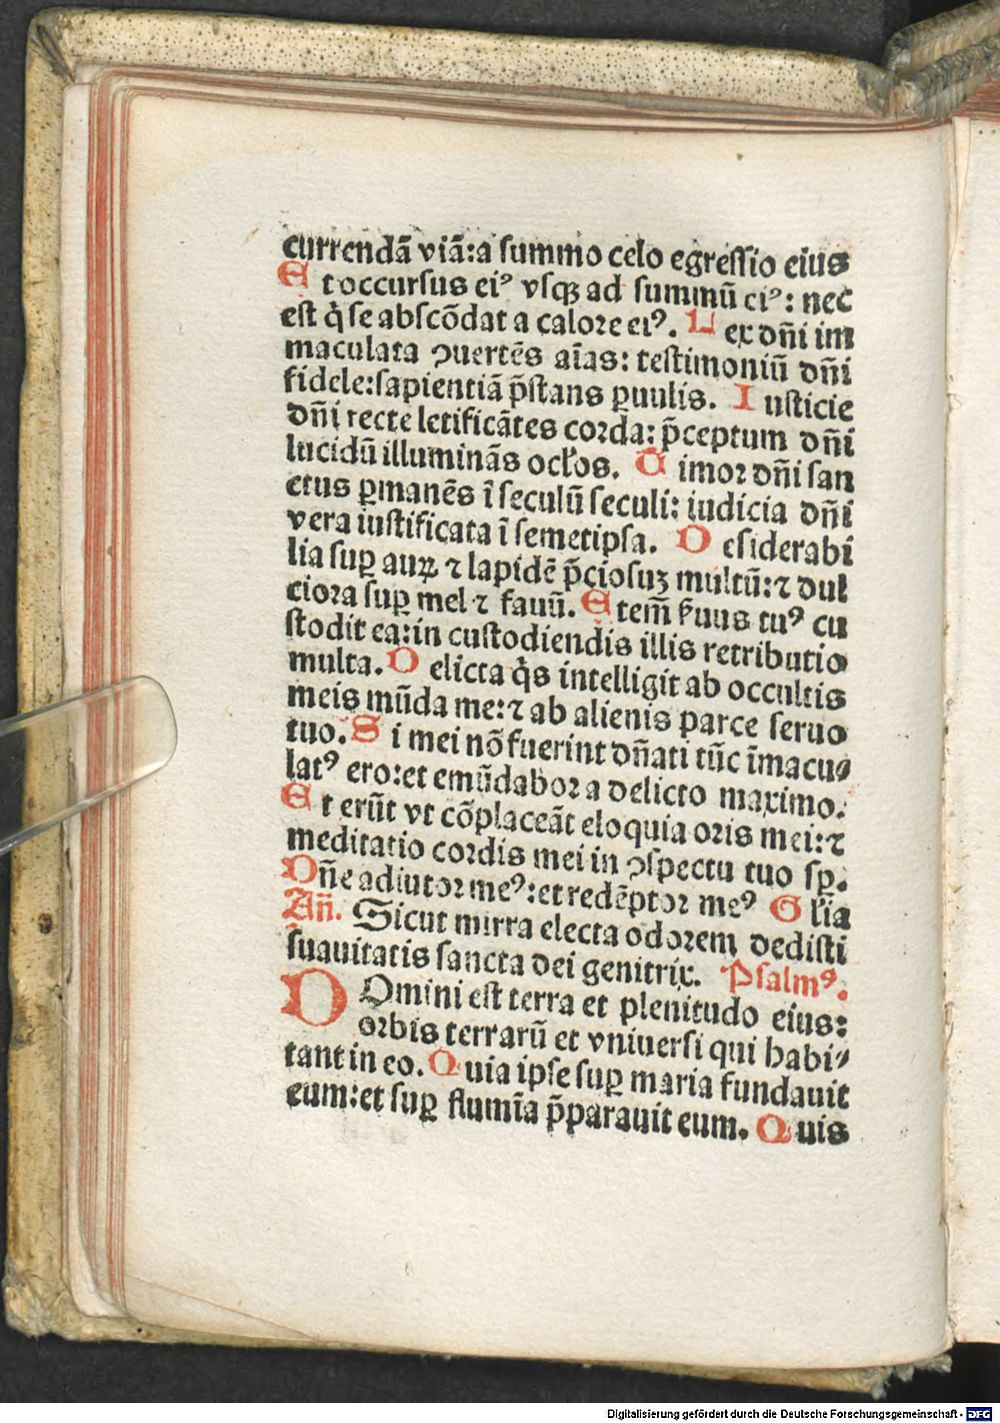 currendā viā:a summo celo egressio eius
Et occursus eiꝰ vsqꝫ ad summū eiꝰ: nec
est q̇ se abscōdat a calore eiꝰ. Lex dn̄i im
maculata ꝯuertēs aīas: testimoniū dn̄i
fidele:sapientiā p̄stans ꝑuulis. Iusticie
dn̄i recte letificātes corda: p̄ceptum dn̄i
lucidū illuminās ocl̓os. Timor dn̄i san
ctus ꝑmanēs ī seculū seculi: iudicia dn̄i
vera iustificata ī semetipsa. Desiderabi
lia suꝑ auꝝ ⁊ lapidē p̄ciosuꝫ multū:⁊ dul
ciora suꝑ mel ⁊ fauū. Etem̄ s̓uus tuꝰ cu
stodit ea:in custodiendis illis retributio
multa. Delicta q̇s intelligit ab occultis
meis mūda me:⁊ ab alienis parce seruo
tuo. Si mei nō fuerint dn̄ati tūc īmacu⸗
latꝰ ero:et emūdabor a delicto maximo.
Et erūt vt cōplaceāt eloquia oris mei:⁊
meditatio cordis mei in ꝯspectu tuo sꝑ.
Dn̄e adiutor meꝰ:et redēptor meꝰ Gl̓ia
An̄. Sicut mirra electa odorem dedisti
suauitatis sancta dei genitrix. Psalmꝰ.
DOmini est terra et plenitudo eius:
orbis terrarū et vniuersi qui habi⸗
tant in eo. Quia ipse suꝑ maria fundauit
eum:et suꝑ flumīa p̄parauit eum. Quis
Digitalisierung gefördert durch die Deutsche Forschungsgemeinschaft - DFG